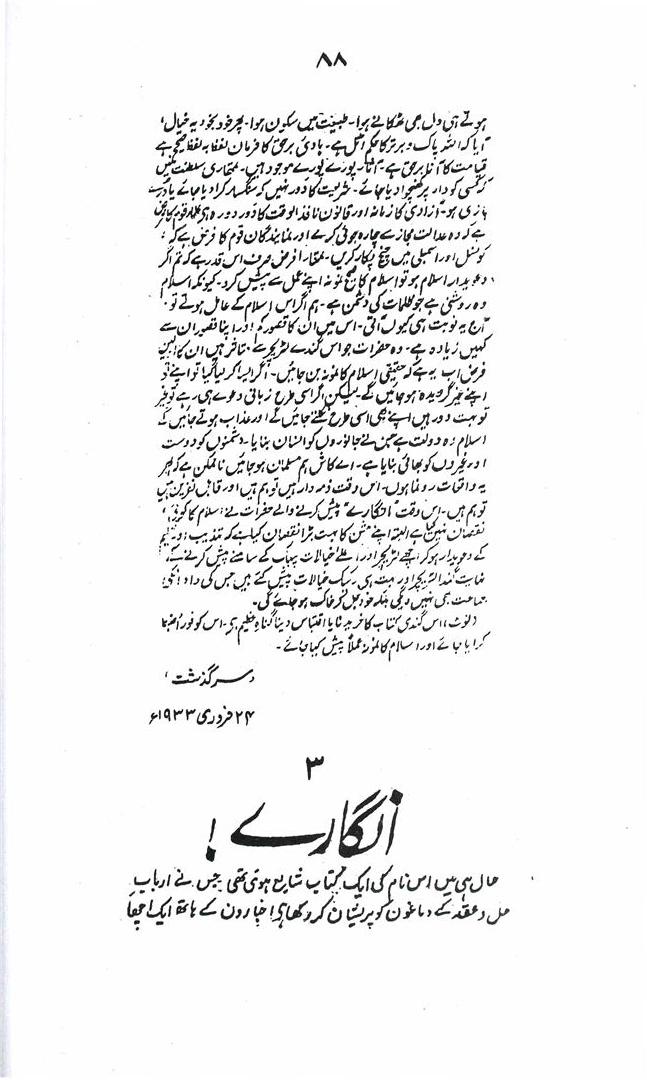 ۸۸
ہوتے ہی دل جمی ٹھکانے ہوا۔ طبیعت میں سکون ہوا۔ پھر خود بخود یہ خیال
آیا کہ اللہ پاک و برتر کا حکم اٹل ہے۔ ہادیٔ برحق کا فرمان لفظ بہ لفظ صحیح ہے
قیامت کا آنا برحق ہے۔ آثار پورے پورے موجود ہیں۔ تمہاری سلطنت نہیں
کہ کسی کو دار پر کھنچوا دیا جائے۔ شریعت کا دور نہیں کہ سنگسار کرا دیا جائے یا درے
بازی ہو۔ آزادی کا زمانہ اور قانون نافذ الوقت کا دور دورہ ہی علماء قوم کا فرض
ہے کہ وہ عدالت مجاز سے چارہ جوئی کرے اور نمایندگان قوم کا فرض ہے کہ
کونسل اور اسمبلی میں چیخ پکار کریں۔ تمہارا فرض صرف اس قدر ہے کہ تم اگر
دعویدار اسلام ہو تو اسلام کا صحیح نمونہ اپنے عمل سے پیش کرو۔ کیونکہ اسلام
وہ روشنی ہے جو ظلمات کی دشمن ہے۔ ہم اگر اس اسلام کے عامل ہوتے تو
آج یہ نوبت ہی کیوں آتی۔ اس میں ان کا قصور کم اور اپنا قصور ان سے
کہیں زیادہ ہے۔ وہ حضرات جو اس گندے لٹریچر سے متاثر ہیں ان کا اولین
فرض اب یہ ہے کہ حقیقی اسلام کا نمونہ بن جائیں۔ اگر ایسا کر لیا گیا تو اپنے تو
اپنے غیر گرویدہ ہو جائیں گے۔ لیکن اگر اسی طرح زبانی دعوے ہی رہے تو غیر
تو بہت دور ہیں اپنے بھی اسی طرح نکلتے جائیں گے اور عذاب ہوتے جائیں گے
اسلام وہ دولت ہے جس نے جانوروں کو انسان بنایا۔ دشمنوں کو دوست
اور غیروں کو بھائی بنایا ہے۔ اے کاش ہم مسلمان ہو جائیں ناممکن ہے کہ پھر
یہ واقعات رونما ہوں۔ اس وقت ذمہ دار ہیں تو ہم ہیں اور قابل نفرین ہیں
تو ہم ہیں۔ اس وقت "انگارے" پیش کرنے والے حضرات نے اسلام کا کوئی
نقصان نہیں کیا ہے البتہ اپنے مشن کا بہت بڑا نقصان کیا ہے کہ تہذیب و تعلیم
کے دعویدار ہو کر اچھے لٹریچر اور اعلےٰ خیالات پبلک کے سامنے پیش کرنے کے
نہایت گندا لٹریچر اور بہت ہی رکیک خیالات پیش کئے ہیں جس کی داد انکی
جماعت ہی نہیں دیگی بلکہ خود جل کر خاک ہو جائے گی۔
(نوٹ) اس گندی کتاب کا خریدنا یا اقتباس دینا گناہ عظیم ہی۔ اس کو فوراً ضبط
کرایا جائے اور اسلام کا نمونہ عملاً پیش کیا جائے۔
"سرگذشت"
۲۴ فروری ۱۹۳۳ء
۳
انگارے!
حال ہی میں اس نام کی ایک کتاب شایع ہوئی تھی جس نے ارباب
حل و عقد کے دماغون کو پریشان کر رکھا ہی! اخبارون کے ہاتھ ایک اچھا